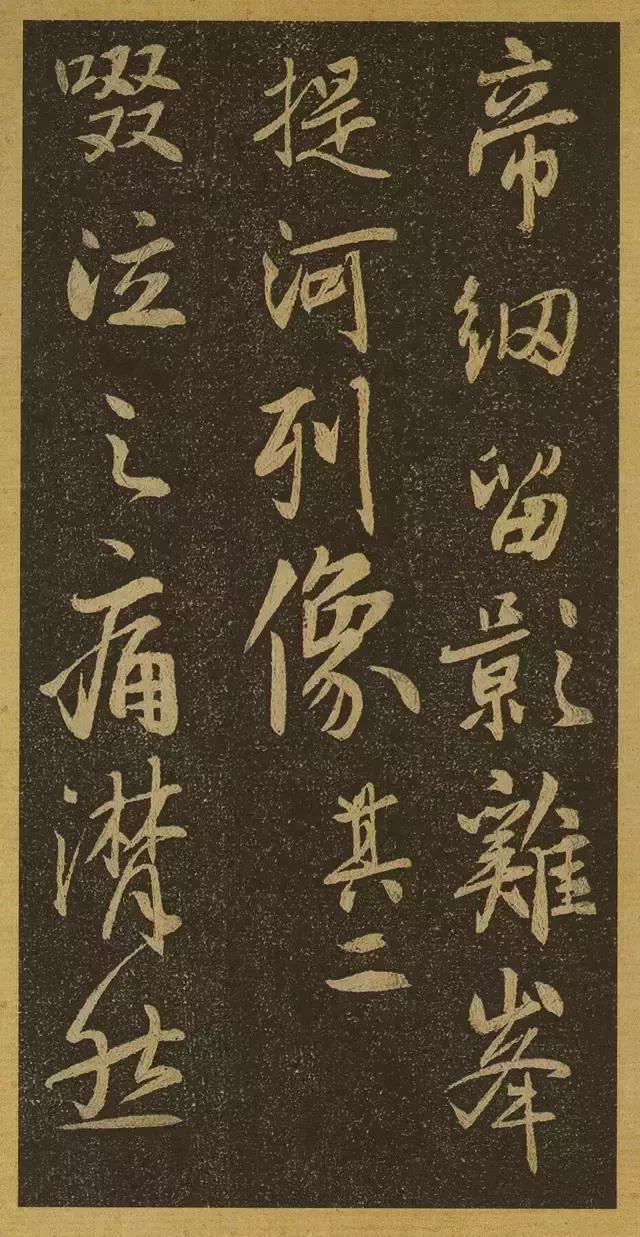 帝網留影雞峯
提河列像其二
啜泣之痛潸然